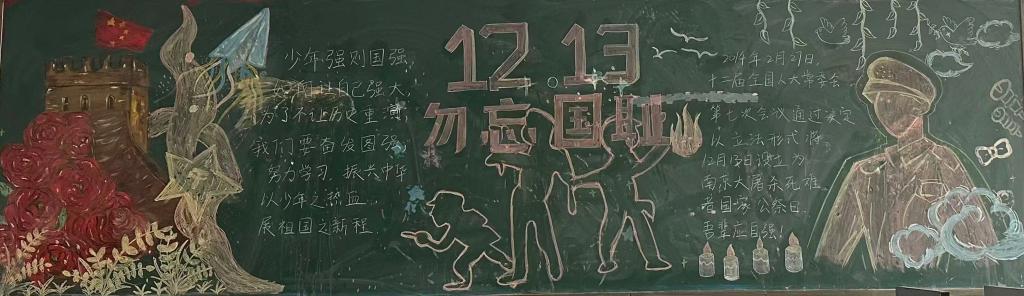 少年强则国强,
自己强大,
为了不让历史重演
我们要奋发图强
努力学习 振兴中华
以少年之热血
展祖国之新程
12 13
勿忘国耻
2014年2月27日,
十二届全国人大常委会
第七次会议通过决定
以立法形式将
12月13日设立为
南京大屠杀死难
者国家公祭日.
吾辈应自强!